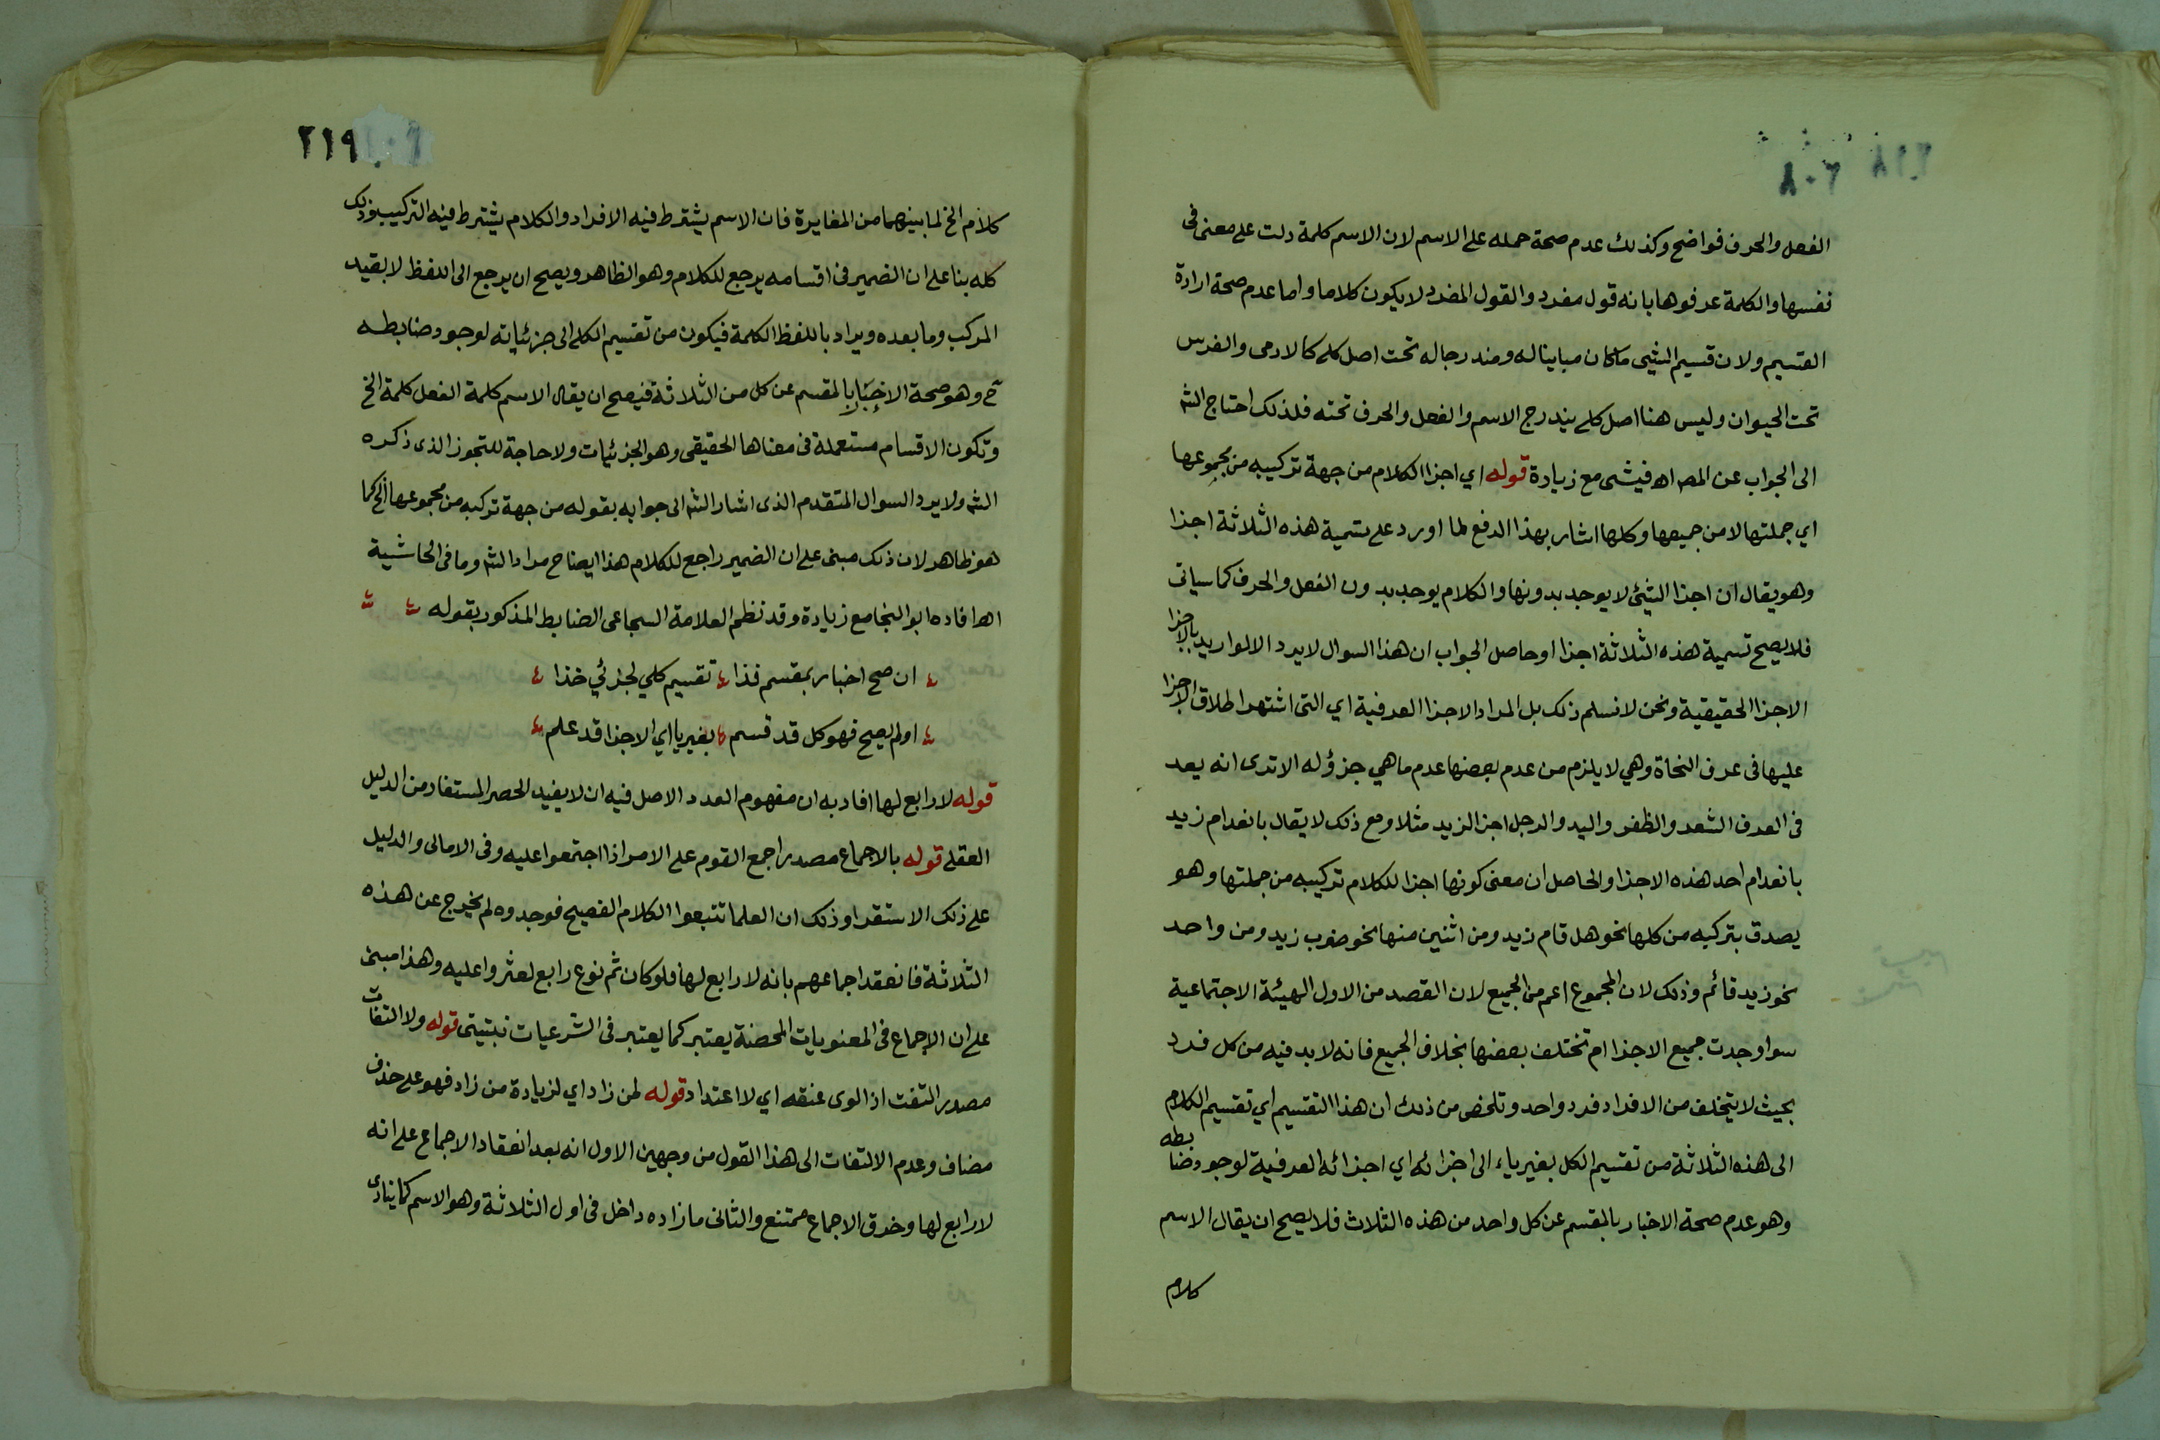 ٢١٨
٦٠٨
الفعل والحرف فواضح وكذلك عدم صحة حمله على الاسم لان الاسم كلمة دلت على معنى في
نفسها والكلمة عرفوها بانه قول مفرد والقول المفرد لا يكون كلاما واما عدم صحة ارادة
القسيم ولان قسيم الشيى ما كان مباينا له ومندرجا له تحت اصل كلي كالادمى والفرس
تحت الحيوان وليس هنا اصل كلي يندرج الاسم والفعل والحرف تحته فلذلك احتاج الشه
الى الجواب عن المصه اهـ فيشى مع زيادة قوله اي اجزا الكلام من جهة تركيبه من مجموعها
اي جملتها لا من جميعها وكلها اشار بهذا الدفع لما اورد على تسمية هذه الثلاثة اجزا
وهو يقال ان اجزا الشيئ لا يوجد بدونها والكلام يوجد بدون الفعل والحرف كما سياتى
فلا يصح تسمية هذه الثلاثة اجزا وحاصل الجواب ان هذا السوال لا يرد الا لو اريد بالاجزا
الاجزا الحقيقية ونحن لا نسلم ذلك بل المراد الاجزا العرفية اي التى اشتهر اطلاق الاجزا
عليها فى عرف النحاة وهي لا يلزم من عدم بعضها عدم ما هي جزؤ له الا ترى انه يعد
فى العرف الشعر والظفر واليد والرجل اجزا لزيد مثلا ومع ذلك لا يقال بانعدام زيد
بانعدام احد هذه الاجزا والحاصل ان معنى كونها اجزا للكلام تركيبه من جملتها وهو
يصدق بتركيبه من كلها نحو هل قام زيد ومن اثنين منها نحو ضرب زيد ومن واحد
نحو زيد قائم وذلك لان المجموع اعم من الجميع لان القصد من الاول الهيئة الاجتماعية
سوا وجدت جميع الاجزا ام تختلف بعضها بخلاف الجميع فانه لا بد فيه من كل فرد
بحيث لا يتخلف من الافراد فرد واحد وتلخص من ذلك ان هذا التقسيم اي تقسيم الكلام
الى هذه الثلاثة من تقسيم الكل بغير ياء الى اجزائه اي اجزائه العرفية لوجود ضابطه
وهو عدم صحة الاخبار بالمقسم عن كل واحد من هذه الثلاث فلا يصح ان يقال الاسم
كلام
٢١٩
كلام الخ لما بينهما من المغايرة فان الاسم يشترط فيه الافراد والكلام يشترط فيه التركيب وذلك
كله بنا على ان الضمير فى اقسامه يرجع للكلام وهو الظاهر ويصح ان يرجع الى اللفظ لا بقيد
المركب وما بعده ويراد باللفظ الكلمة فيكون من تقسيم الكلي الى جزئياته لوجود ضابطه
ح وهو صحة الاخبار بالمقسم عن كل من الثلاثة فيصح ان يقال الاسم كلمة الفعل كلمة الخ
وتكون الاقسام مستعملة فى معناها الحقيقى وهو الجزئيات ولا حاجة للتجوز الذى ذكره
الشه ولا يرد السوال المتقدم الذى اشار الشه الى جوابه بقوله من جهة تركبه من مجموعها الخ كما
هو ظاهر لان ذلك مبنى على ان الضمير راجع للكلام هذا ايضاح مراد الشه وما فى الحاشية
اهـ افاده ابو النجا مع زيادة وقد نظم العلامة السجاعى الضابط المذكور بقوله
ان صح اخبار بمقسم فذا تقسيم كلي لجزئي خذا
او لم يصح فهو كل قد قسم بغير يا اي الاجزا قد علم
قوله لا رابع لها افاد به ان مفهوم العدد الاصل فيه ان لا يفيد الحصر المستفاد من الدليل
العقلى قوله بالاجماع مصدر اجمع القوم على الامر اذا اجتمعوا عليه وفى الامالى والدليل
على ذلك الاستقرا وذلك ان العلما تتبعوا الكلام الفصيح فوجدوه لم يخرج عن هذه
الثلاثة فانعقد اجماعهم بانه لا رابع لها فلو كان ثم نوع رابع لعثروا عليه وهذا مبنى
على ان الاجماع فى المعنويات المحضة يعتبر كما يعتبر فى الشرعيات نبتيتى قوله ولا التفات
مصدر التفت اذا لوى عنقه اي لا اعتداد قوله لمن زاد اي لزيادة من زاد فهو على حذف
مضاف وعدم الالتفات الى هذا القول من وجهين الاول انه بعد انعقاد الاجماع على انه
لا رابع لها وخرق الاجماع ممتنع والثانى ما زاده داخل فى اول الثلاثة وهو الاسم كما ينادى